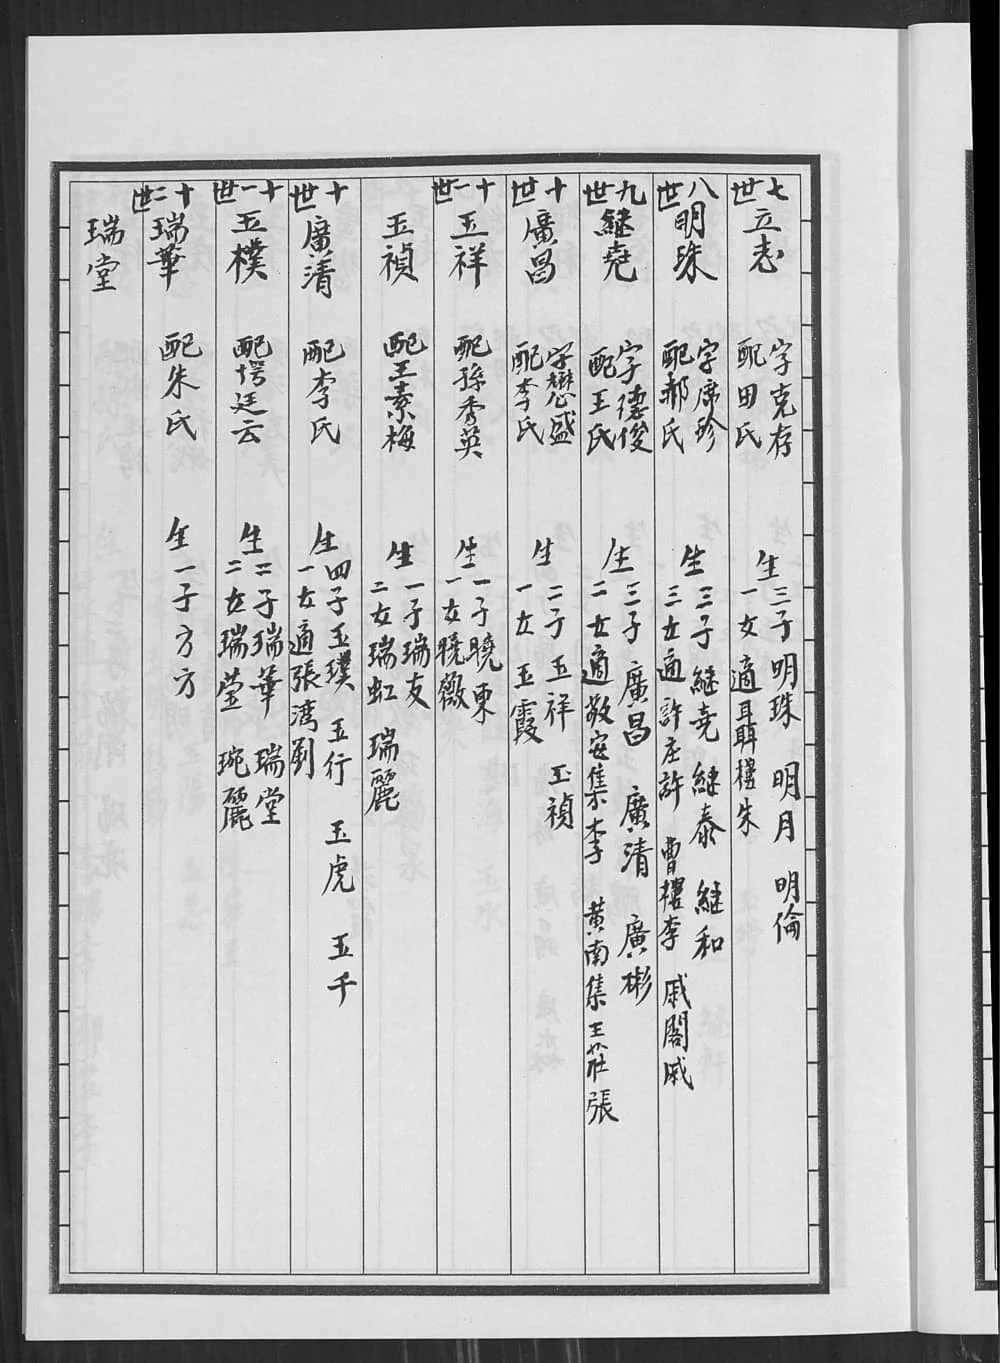 七世 立志 字克存 配田氏 生三子明珠 明月 明倫 一女適聶樓朱
八世 明珠 字席珍 配郝氏 生三子継尭 継泰 継和 三女適許庄許 曹樓李 戚閣戚
九世 継尭 字德俊 配王氏 生三子 廣昌 廣清 廣彬 二女適敬安集李 黄南集王莊張
十世 廣昌 字懋盛 配李氏 生二子 玉祥 玉禎 一女 玉霞
十一世 玉祥 配孫秀英 生一子曉東 一女曉薇
玉禎 配王素梅 生一子瑞友 二女瑞虹 瑞麗
十世 廣清 配李氏 生四子玉璞 玉行 玉虎 玉千 一女適張湾劉
十一世 玉樸 配愕廷云 生二子瑞華 瑞堂 二女瑞莹 琬麗
十二世 瑞華 配朱氏 生一子方方
瑞堂